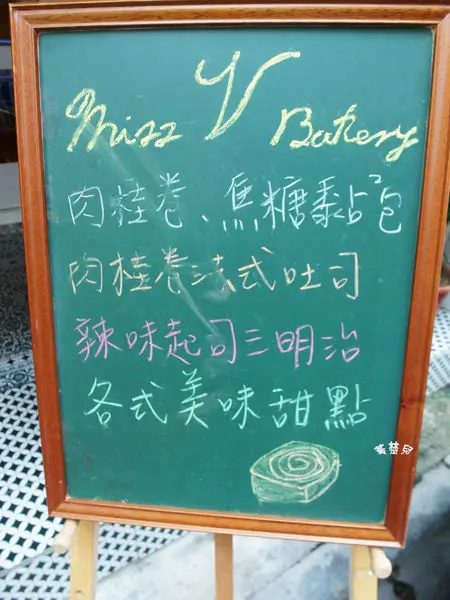 Miss V Bakery
肉桂卷、焦糖黏²包
肉桂卷法式吐司
辣味起司三明治
各式美味甜點